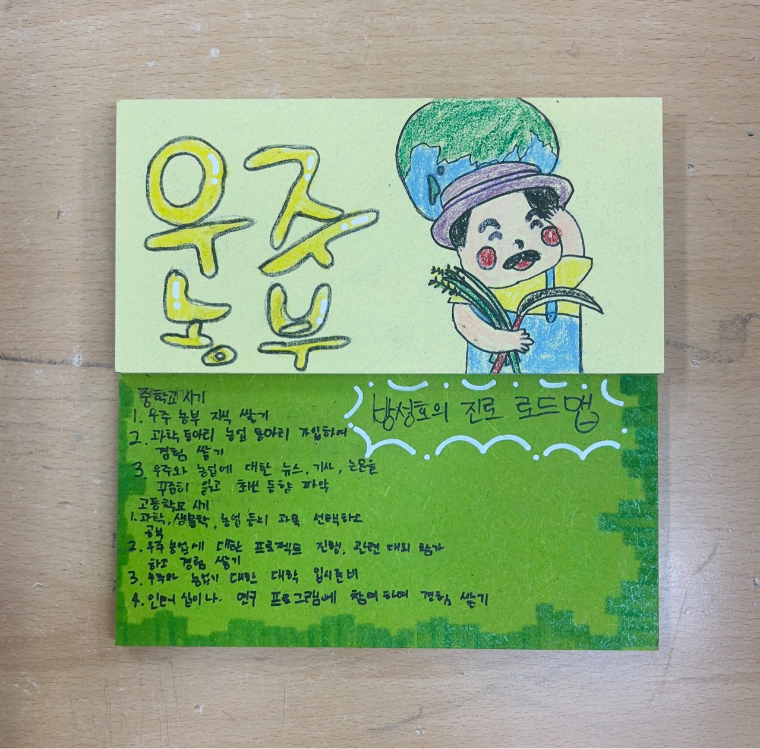 우주
농부
방성호의 진로 로드맵
중학교 시기
1. 우주 농부 지식 쌓기
2. 과학동아리 농업 동아리 가입하여
경험 쌓기
3. 우주와 농업에 대한 뉴스, 기사, 논문을
꾸준히 읽고 최신 동향 파악
고등학교 시기
1. 과학, 생물학, 농업 등의 과목 선택하고
공부
2. 우주농업에 대한 프로젝트 진행, 관련 대회 참가
하고 경험 쌓기
3. 우주와 농업기 대한 대학 입시준비
4. 인턴십이나 연구 프로그램에 참여하여 경험 쌓기